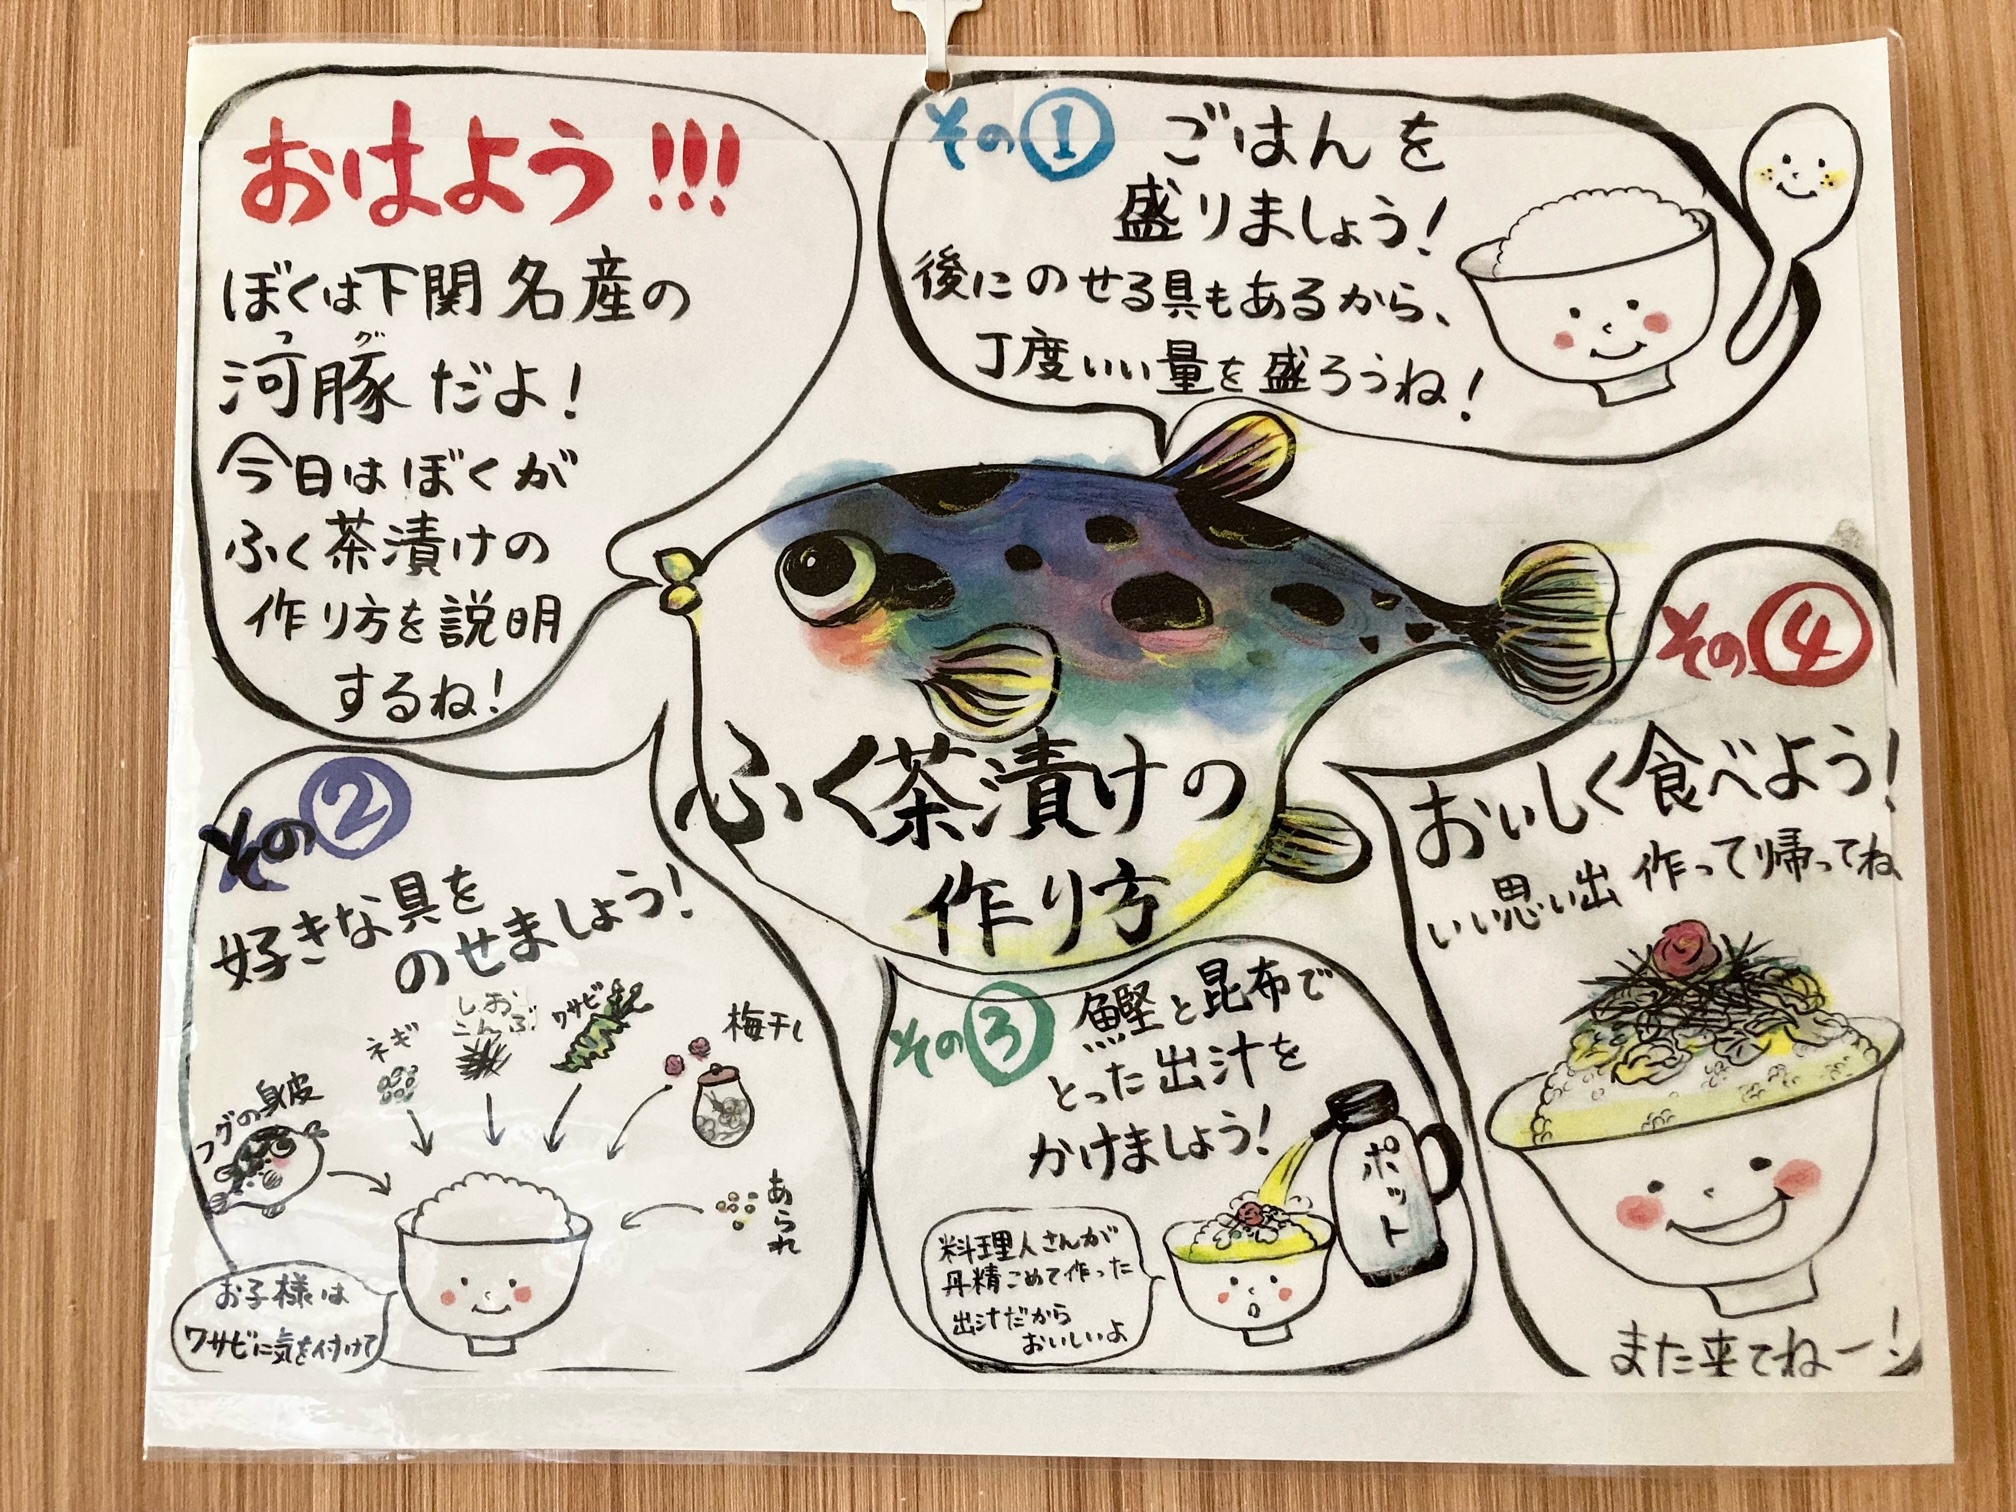 おはよう!!!
ぼくは下関名産の
河豚だよ!
フグ
今日はぼくが
ふく茶漬けの
作り方を説明
するね!
その①ごはんを
盛りましょう!
後にのせる具もあるから、
丁度いい量を盛ろうね!
ふく茶漬けの
作り方
その②
好きな具を
のせましょう!
フグの身皮
ネギ
しお
こんぶ
ワサビ
梅干し
あられ
お子様は
ワサビに気を付けて
その③鰹と昆布で
とった出汁を
かけましょう!
ポット
料理人さんが
丹精こめて作った
出汁だから
おいしいよ
その④
おいしく食べよう!
いい思い出作って帰ってね
また来てねー!